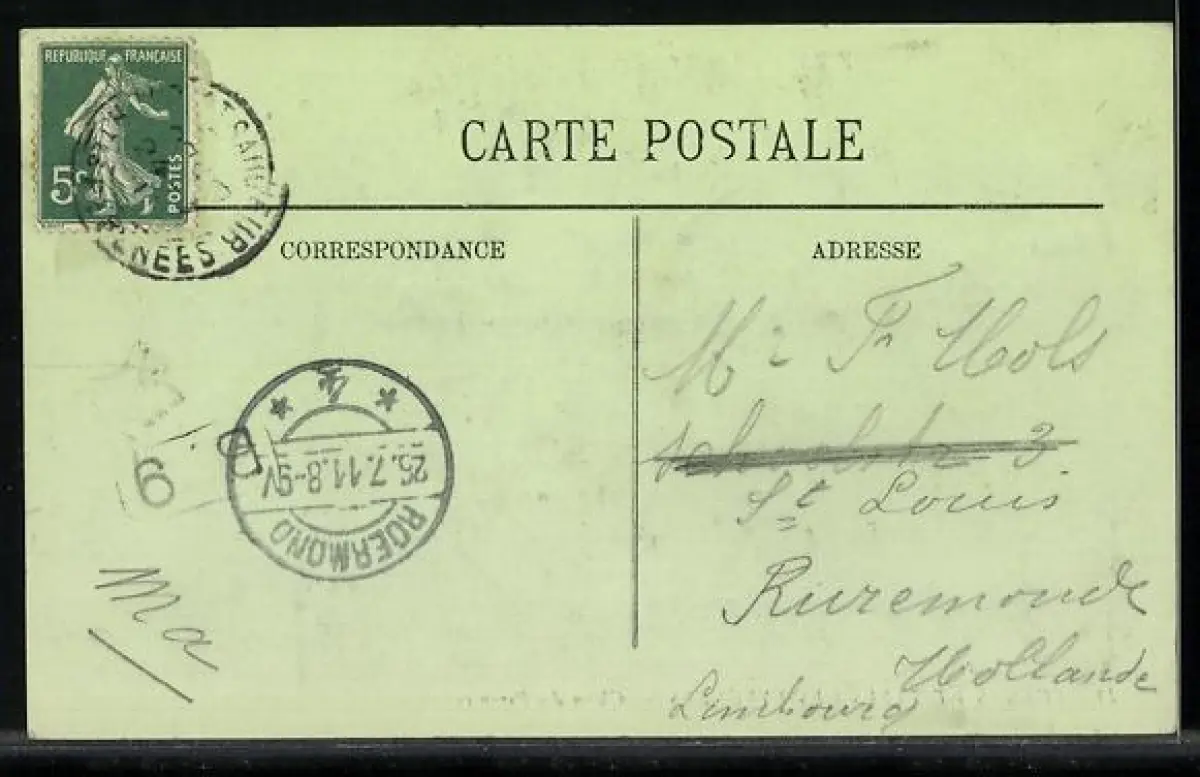 REPUBLIQUE FRANÇAISE
5c POSTES
ENEES
CARTE POSTALE
CORRESPONDANCE
ADRESSE
Mr Fr Mols
3.
St Louis
Ruremonde
Hollande
Limbourg
4
25.7.11.8-9V
ROERMOND
6
Ma